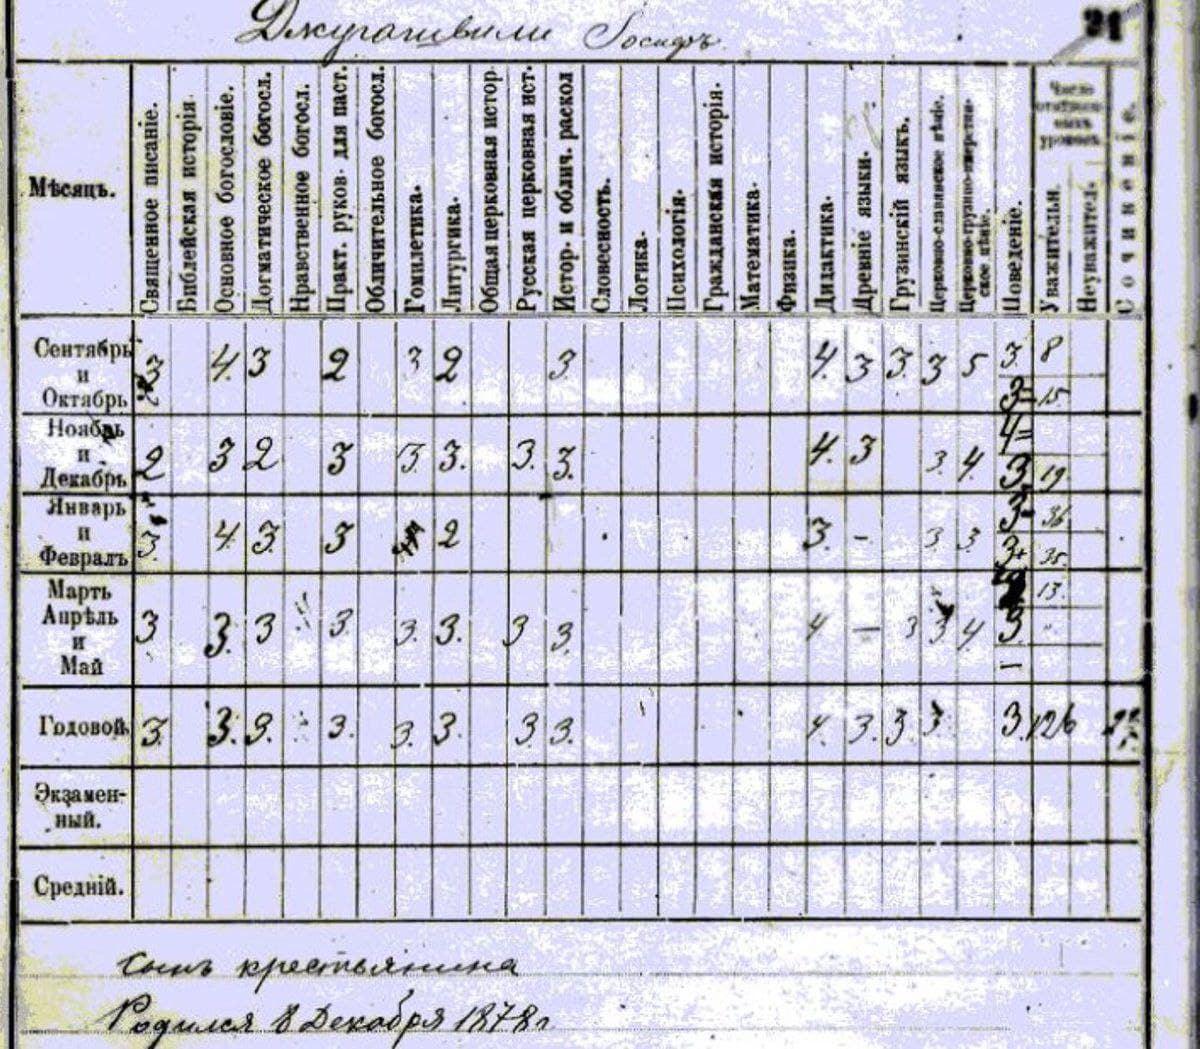 Джугашвили Іосифъ
21
Мѣсяцъ.
Священное писаніе.
Библейская исторія.
Основное богословіе.
Догматическое богосл.
Нравственное богосл.
Практ. руков. для паст.
Обличительное богосл.
Гомилетика.
Литургика.
Общая церковная истор.
Русская церковная ист.
Истор- и облич. раскол
Словесность.
Логика.
Психологія.
Гражданская исторія.
Математика.
Физика.
Дидактика.
Древніе языки.
Грузинскій языкъ.
Церковно-славянское пѣніе.
Поведеніе.
Число
уроковъ.
Уважительн.
Неуважител.
Сочиненіе.
Сентябрь и Октябрь 3 4. 3 2 3 2 3. 4. 3 3. 3 5 3. 8
3= 15.
Ноябрь и Декабрь 2 3 2 3 3. 3. 3. 3. 4. 3 3. 4. 4=
3 19.
Январь и Февраль 3. 4. 3. 3 2 3. – 3 3. 3- 36
3+ 35.
Мартъ Апрѣль и Май 3 3. 3 3 3. 3. 3 3. 4 – 3 3 4. 13.
3
Годовой 3. 3. 3. 3. 3. 3. 3 3. 4. 3. 3 3. 3. 126
Экзамен-
ный.
Средній.
Сынъ крестьянина
Родился 8 Декабря 1878 г.